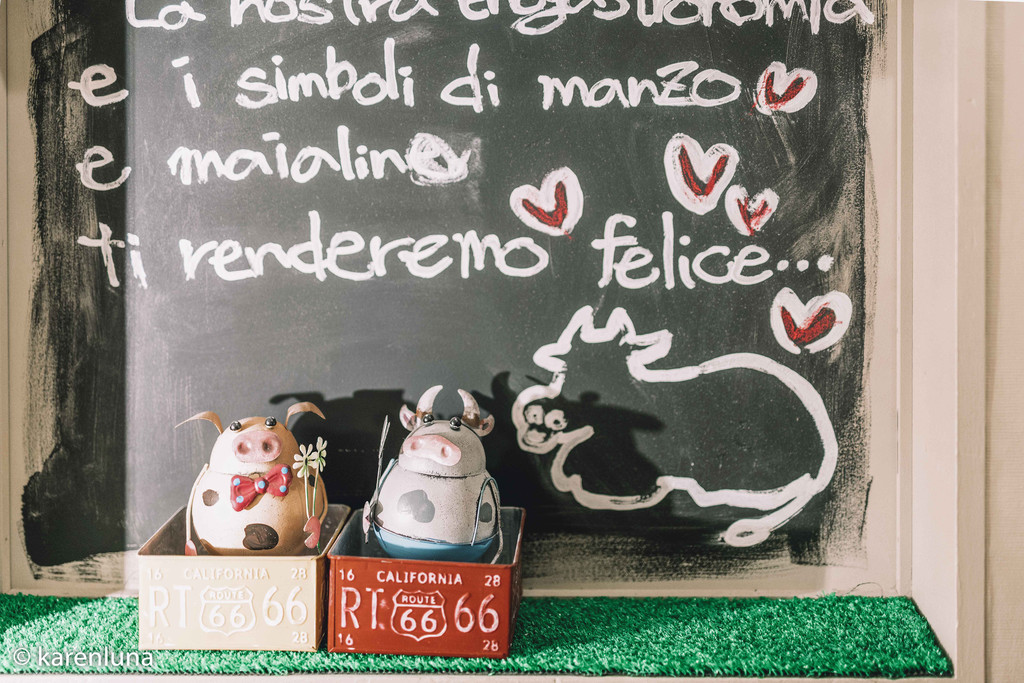 La nostra enogastronomia
e i simboli di manzo
e maialino
ti renderemo felice...
16 CALIFORNIA 28
RT ROUTE 66 66
16 28
16 CALIFORNIA 28
RT ROUTE 66 66
16 28
© karenluna